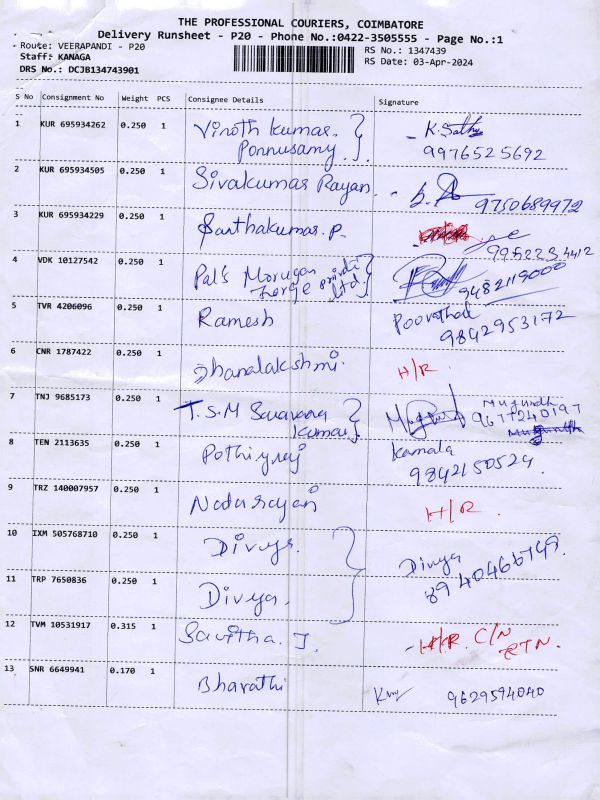 THE PROFESSIONAL COURIERS, COIMBATORE
Delivery Runsheet - P20 - Phone No.:0422-3505555 - Page No.:1
Route: VEERAPANDI - P20
RS No.: 1347439
Staff: KANAGA
RS Date: 03-Apr-2024
DRS No.: DCJB134743901
S No Consignment No Weight PCS Consignee Details Signature
1 KUR 695934262 0.250 1 Vinoth Kumar. K. Sathy
Ponnusamy. 9976525692
2 KUR 695934505 0.250 1 Sivakumar Rayan.
9750689972
3 KUR 695934229 0.250 1 Santhakumar. P.
995223 4412
4 VDK 10127542 0.250 1 Pal's Murugan
Ltd. 9482119000
5 TVR 4206096 0.250 1 Ramesh
9842953172
6 CNR 1787422 0.250 1 Dhanalakshmi. H/R
7 TNJ 9685173 0.250 1 T.S.M Saravana Mugundh
Kumar 9677240197
8 TEN 2113635 0.250 1 Pothiyraj Kamala
9842150524.
9 TRZ 140007957 0.250 1 Natarayan H/R.
10 IXM 505768710 0.250 1 Divya. Divya
8940466749.
11 TRP 7650836 0.250 1 Divya.
12 TVM 10531917 0.315 1 Savitha. J. - H/R. C/N
RTN.
13 SNR 6649941 0.170 1 Bharathi 9629594040